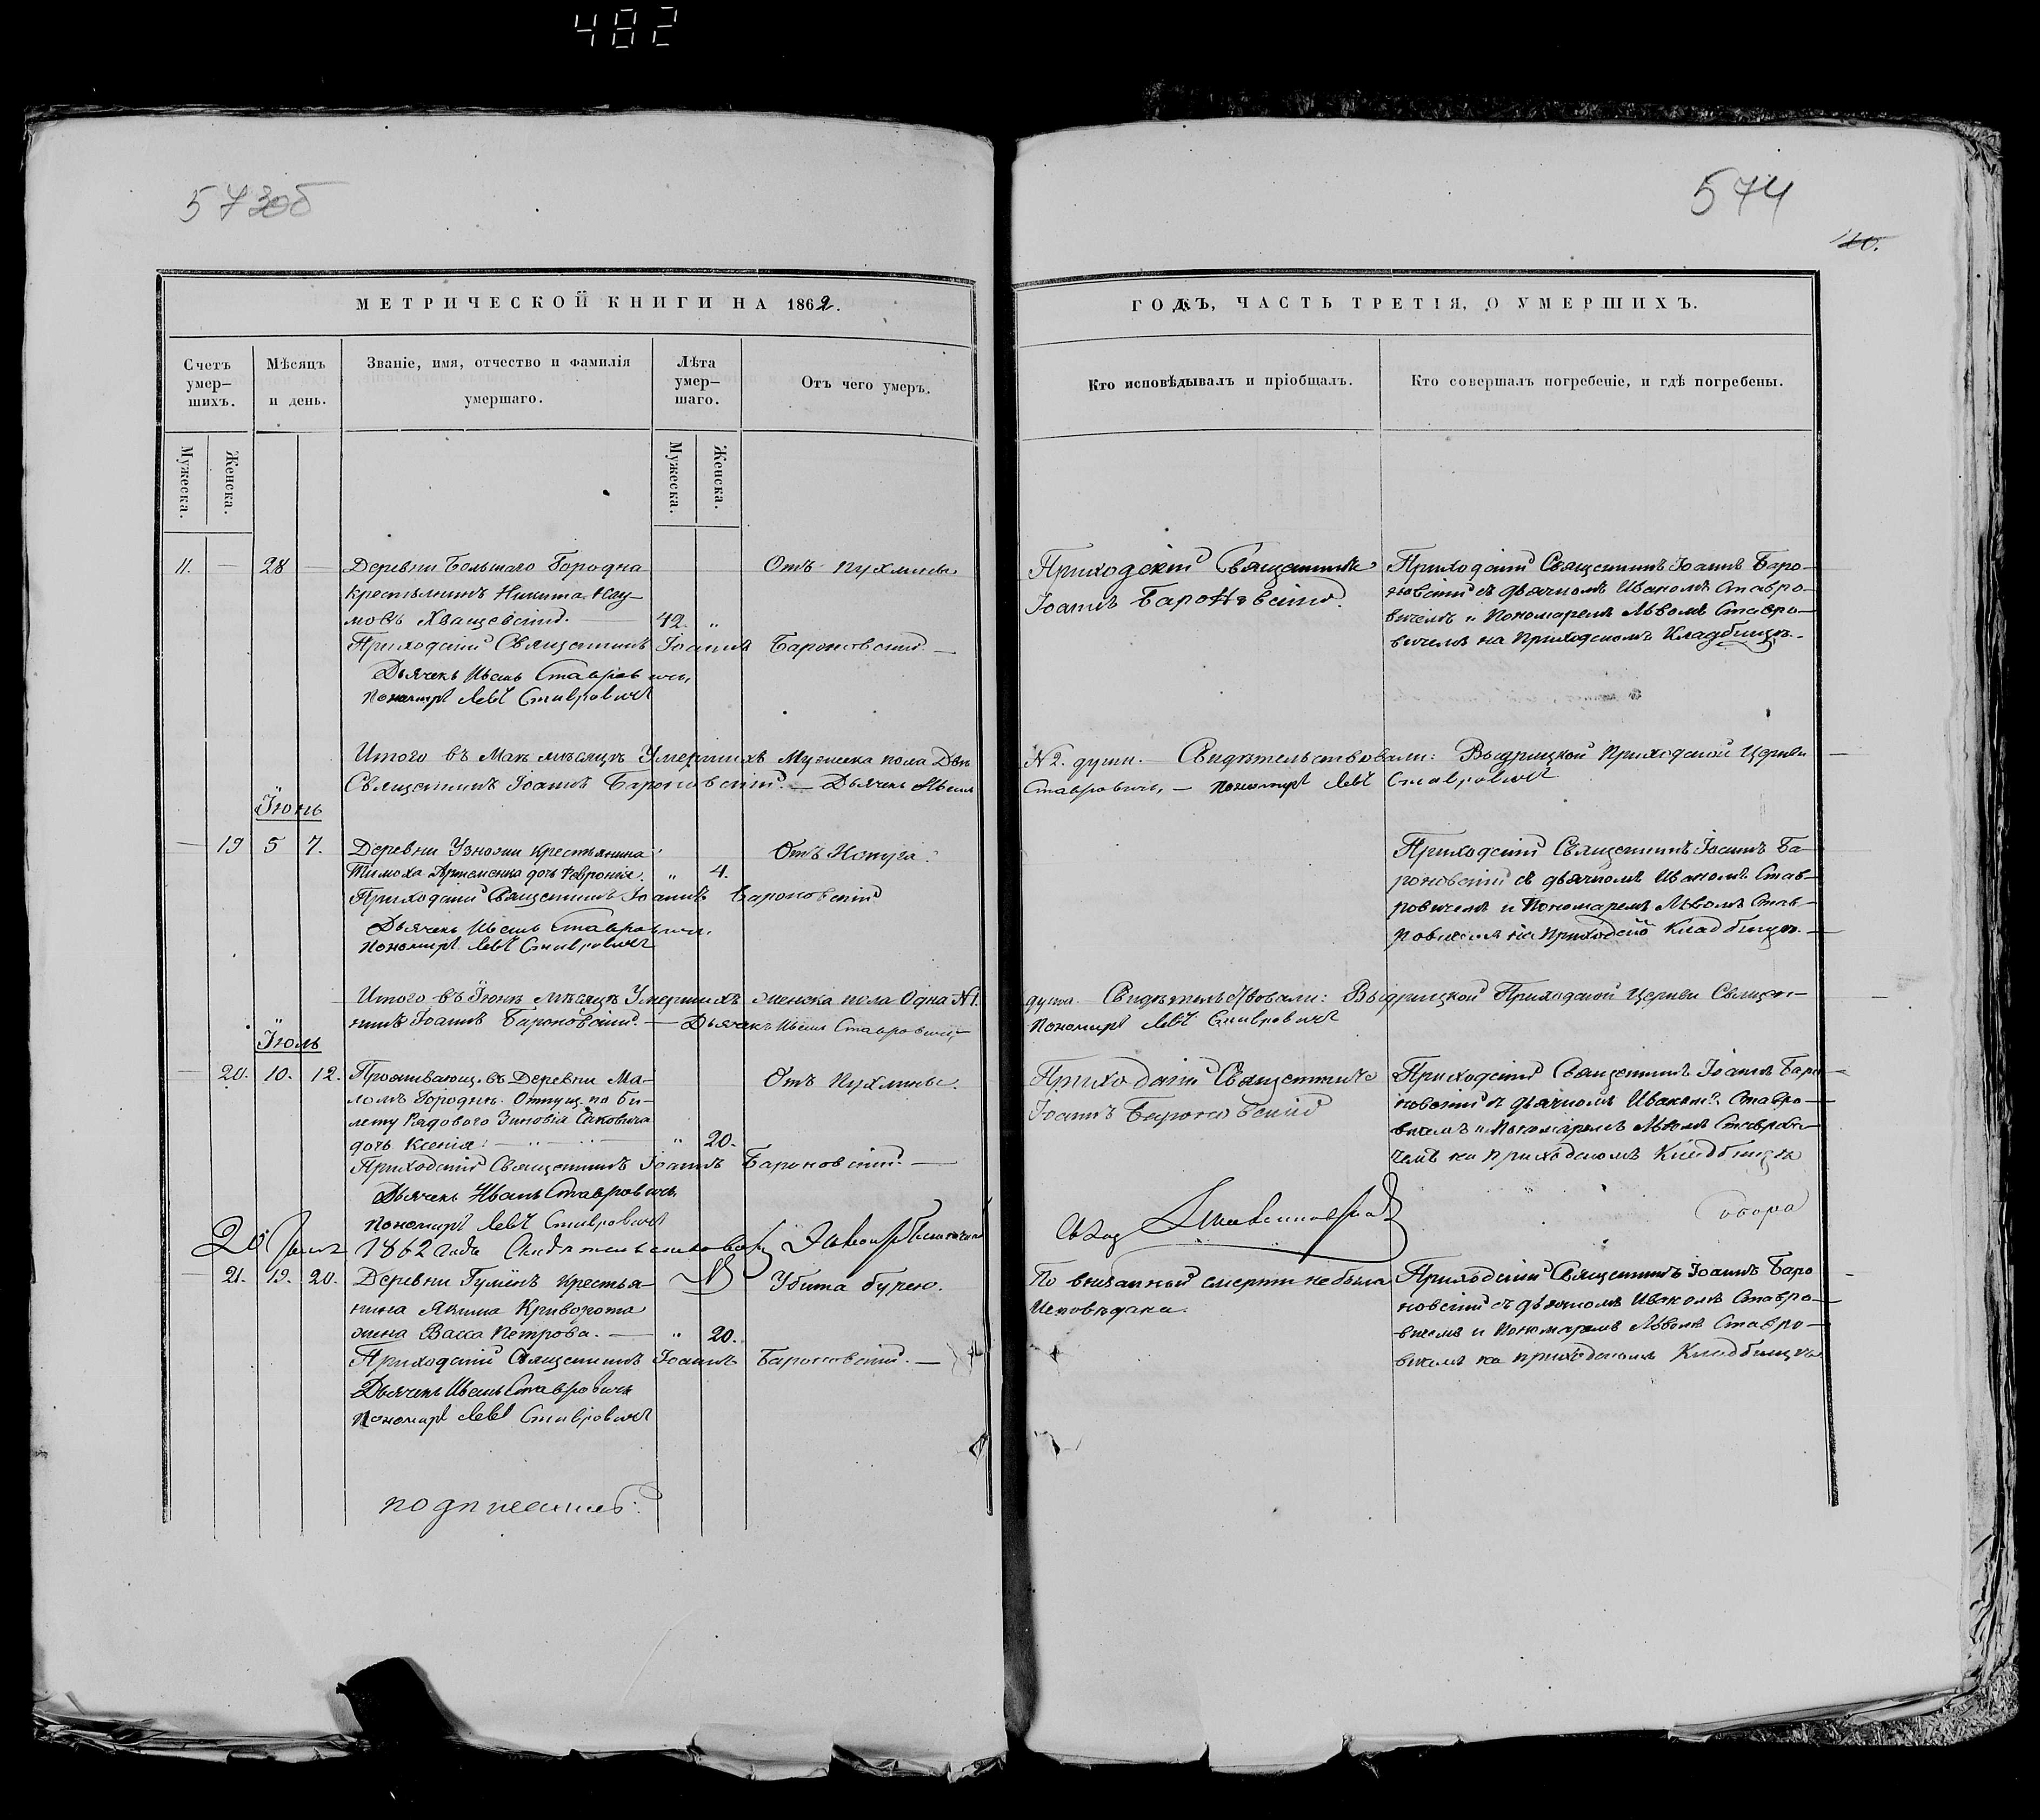 482
573об
574
МЕТРИЧЕСКОЙ КНИГИ НА 1862.
ГОДЪ, ЧАСТЬ ТРЕТІЯ, О УМЕРШИХЪ.
Счетъ умер–шихъ.
Мѣсяцъ и день.
Званіе, имя, отчество и фамилія умершаго.
Лѣта умер–шаго.
Отъ чего умеръ.
Кто исповѣдывалъ и пріобщалъ.
Кто совершалъ погребеніе, и гдѣ погребены.
Мужеска.
Женска.
Мужеска.
Женска.
11. — 28 —
Деревни Большаго Городна
крестьянинъ Никита Нау–
мовъ Хващевскій. — 42. "
Отъ пухлины
Приходскій Священникъ
Іоаннъ Бароновскій.
Приходскій Священникъ Іоаннъ Баро–
новскій съ дьячкомъ Иваномъ Ставро–
вичемъ и Пономаремъ Львомъ Ставро–
вичемъ на Приходскомъ Кладбищѣ.
Приходскій Священникъ Іоаннъ Бароновскій. —
Дьячекъ Иванъ Ставровичъ,
Пономарь Левъ Ставровичъ
Итого въ Маѣ мѣсяцѣ Умершихъ Мужеска пола Двѣ
№ 2. души. — Свидѣтельствовали: Выдрицкой Приходской Церкви
Священникъ Іоаннъ Бароновскій. — Дьячекъ Иванъ
Ставровичъ, — Пономарь Левъ Ставровичъ
Іюнь
— 19 5 7.
Деревни Узноги крестьянина
Тимоха Артеменка дочь Февронія. " 4.
Приходскій Священникъ Іоаннъ Бароновскій
Дьячекъ Иванъ Ставровичъ.
Пономарь Левъ Ставровичъ
Приходскій Священникъ Іоаннъ Ба–
роновскій съ дьячкомъ Иваномъ Став–
ровичемъ и Пономаремъ Львомъ Став–
ровичемъ на Приходской Кладбищѣ. —
Итого въ Іюнѣ мѣсяцѣ Умершихъ женска пола Одна № 1.
душа. Свидѣтельствовали: Выдрицкой Приходской Церкви Священ–
никъ Іоаннъ Бароновскій. — Дьячекъ Иванъ Ставровичъ,
Пономарь Левъ Ставровичъ
Іюль
— 20. 10. 12.
Проживающ. въ Деревни Ма–
ломъ Городнѣ Отпущ. по би–
лету Рядового Зиновія
дочь Ксенія. — " 20.
Отъ пухлины.
Приходскій Священникъ
Іоаннъ Бароновскій
Приходскій Священникъ Іоаннъ Баро–
новскій съ дьячкомъ Иваномъ Ставро–
вичемъ и Пономаремъ Львомъ Ставрови–
чемъ на приходскомъ Кладбищѣ
Приходскій Священникъ Іоаннъ Бароновскій. —
Дьячекъ Иванъ Ставровичъ
Пономарь Левъ Ставровичъ
1862 года Свидѣтельствовалъ
— 21. 19. 20.
Деревни Гумнъ Крестья–
нина Якима Криворота
жена Васса Петрова. — " 20.
Убита бурею.
По внезапной смерти не была
Исповѣдана.
Приходскій Священникъ Іоаннъ Баро
новскій съ дьячкомъ Иваномъ Ставро–
вичемъ и Пономаремъ Львомъ Ставро–
вичемъ на приходскомъ Кладбищѣ
Приходскій Священникъ Іоаннъ Бароновскій. —
Дьячекъ Иванъ Ставровичъ
Пономарь Левъ Ставровичъ